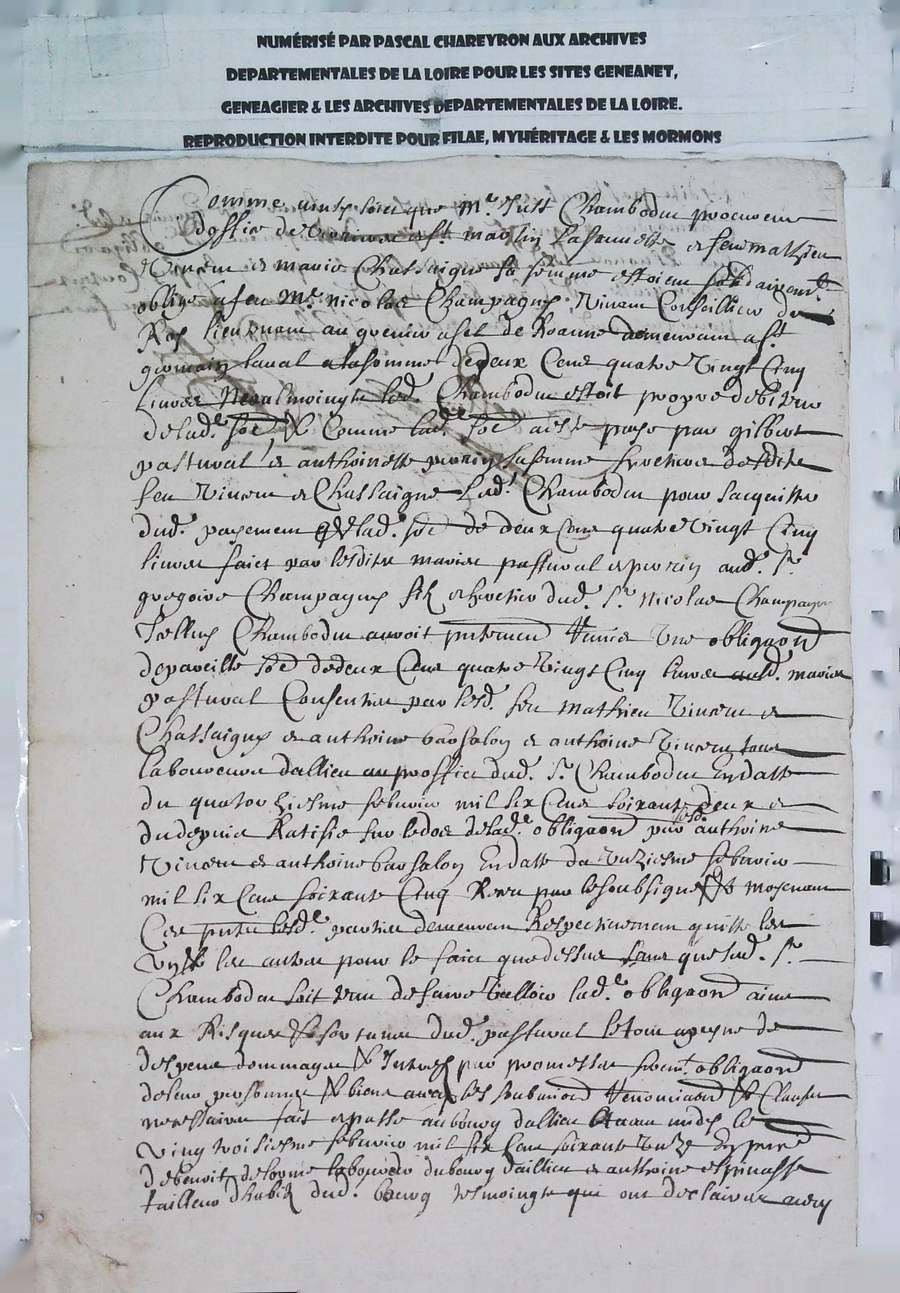 NUMÉRISÉ PAR PASCAL CHAREYRON AUX ARCHIVES
DEPARTEMENTALES DE LA LOIRE POUR LES SITES GENEANET,
GENEAGIER & LES ARCHIVES DEPARTEMENTALES DE LA LOIRE.
REPRODUCTION INTERDITE POUR FILAE, MYHÉRITAGE & LES MORMONS
Comme ainsy soict que Mre Just Chambodu procureur
d'office de et feu mathieu
Vincent et marie Chassaigne sa femme estoient sollidairemt
obligé a feu Mre Nicolas Champagny Vivant Conseillier du
Roy lieutenant au grenier a sel de Roanne demeurant a st
germain laval a la somme de deux Cens quatre Vingt Cinq
Livres Neantmoingts led. Chambodu estoit propre debiteur
de lad. so͠e & Comme lad. so͠e a esté payé par gilbert
pastural et anthoinette perrin sa femme heretiers desdits
feu Vincent et Chassaigne Led. Chambodu pour sacquitter
dud. payement de lad. so͠e de deux Cens quatre Vingt Cinq
livres faict par lesdits mariés pastural et perrin aud. Sr
gregoire Champagny filz et heretier dud. Sr Nicolas Champagny
Chambodu avoit une obliga͠on
de pareille so͠e de deux Cens quatre Vingts Cinq livres ausd. mariés
pastural Consentie par lesd. feu Mathieu Vincent et
Chassaigne et anthoine barsalon et anthoine Vincent tous
laboureurs dallieu au proffict dud. Sr Chambodu En datte
du quatorziesme febvrier mil six Cens soixante deux et
du depuis Ratifié sur le dos de lad. obliga͠on par lesd. anthoine
Vincent et anthoine barsalon En datte du unziesme febvrier
mil six Cens soixante Cinq Receu par le soubsigné & moyenant
Ces lesd. parties demeurent Respectivement quittes les
Uns les autres pour le faict que dessus sans que led. Sr
Chambodu soit tenu de faire Valloir lad. obliga͠on ains
aux Risques & fortune dud. pastural le tout a peyne de
despens dommages & Interestz par promesses sermt obliga͠on
de leurs personnes & biens avec les submi͠ons Renonciations & Clauses
necessaires fait et passé au bourg dallieu avant midy le
Vingt troisiesme febvrier mil six Cens soixante Unze En pn͠ce
de benoit delorme laboureur du bourg daillieu et anthoine espinasse
tailleur d'habitz dud. bourg tesmoingts qui ont declairé